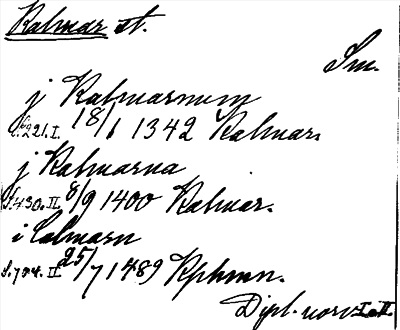 Kalmar st.
Sm.
j Kalmarnum
s. 221. I. 18/1 1342 Kalmar.
j Kalmarna
s. 430. II. 8/9 1400 Kalmar.
i Calmarn
s. 704. II. 25/7 1489 Kphmn.
Dipl. norv. I o. II.